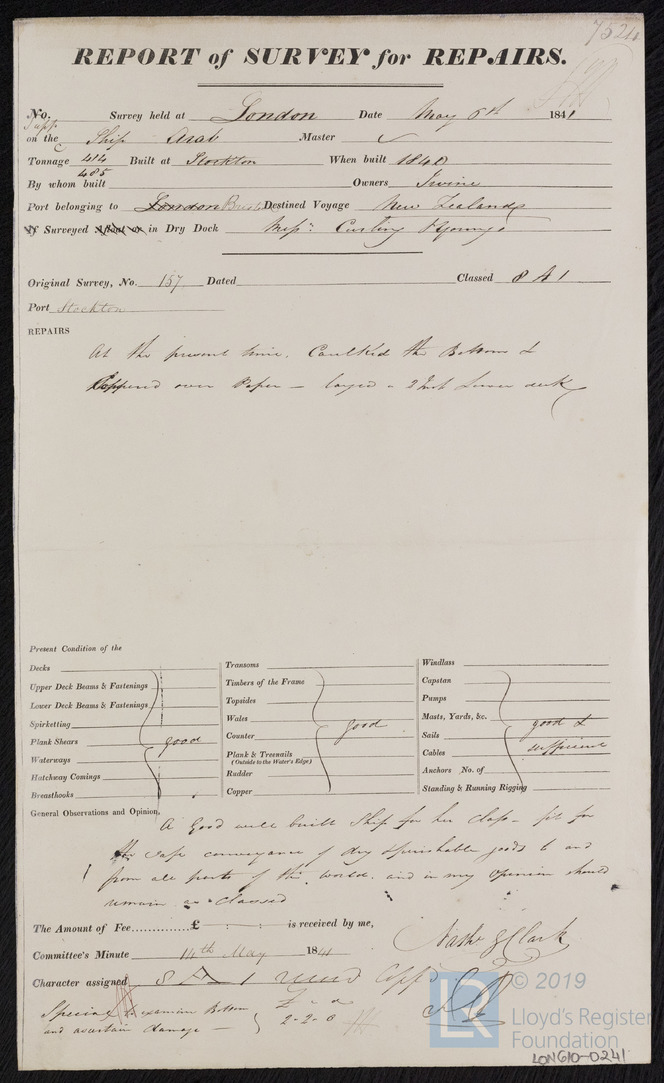 7524
REPORT of SURVEY for REPAIRS.
No. Survey held at London Date May 6th 1841
on the Ship Arab Master
Tonnage 414 Built at Stockton When built 1840
485
By whom built Owners Irvine
Port belonging to London Destined Voyage New Zealand
If Surveyed Afloat or in Dry Dock Messrs Curling & Young's
Original Survey, No. 157 Dated Classed 8 A 1
Port Stockton
REPAIRS
At the present time, Caulked the Bottom &
Coppered over Paper – layed a 2 Inch Lower deck
Present Condition of the
Decks
Upper Deck Beams & Fastenings
Lower Deck Beams & Fastenings
Spirketting
Plank Shears good
Waterways
Hatchway Comings
Breasthooks
Transoms
Timbers of the Frame
Topsides
Wales
Counter good
Plank & Treenails
(Outside to the Water's Edge)
Rudder
Copper
Windlass
Capstan
Pumps
Masts, Yards, &c. good &
Sails
Cables sufficient
Anchors No. of
Standing & Running Rigging
General Observations and Opinion,
A Good well built Ship for her class – fit for
the safe conveyance of dry & perishable goods to and
from all parts of the world. and in my opinion should
remain as classed
The Amount of Fee £ is received by me,
Nathl G Clark
Committee's Minute 14th May 1841
Character assigned 8 A 1
Special to examine Bottom
and ascertain damage –
2-2-0
LR © 2019
Lloyd's Register
Foundation
LON610-0241